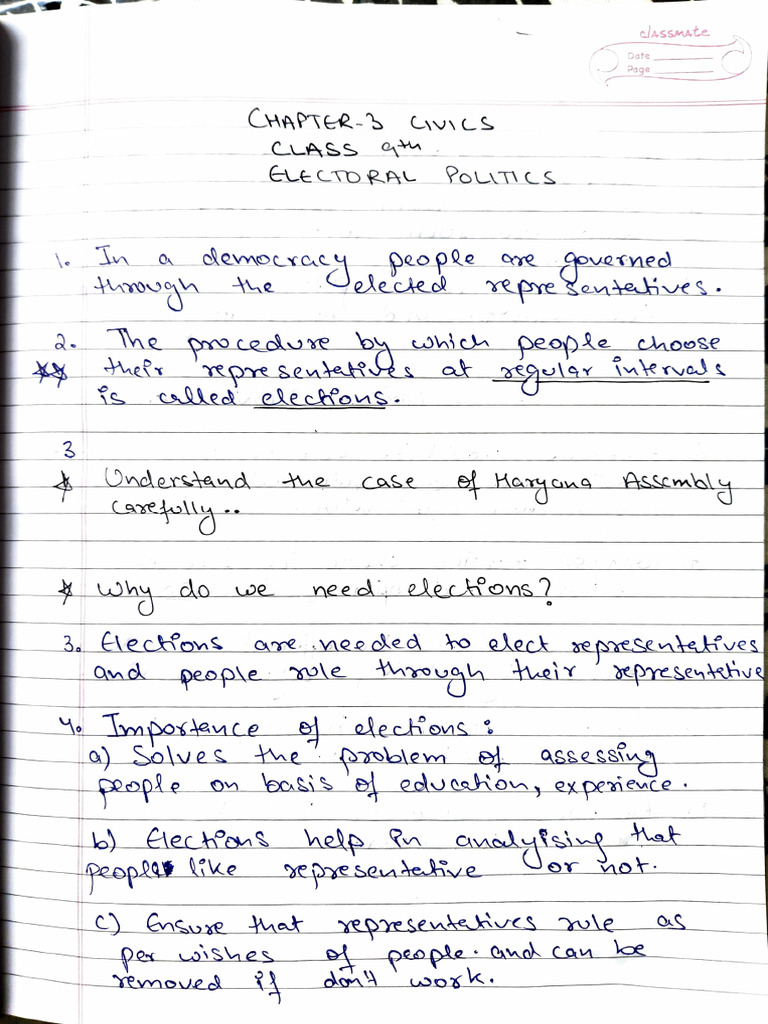 classmate
Date
Page
CHAPTER-3 CIVICS
CLASS 9th
ELECTORAL POLITICS
1. In a democracy people are governed
through the elected representatives.
2. The procedure by which people choose
their representatives at regular intervals
is called elections.
3
Understand the case of Haryana Assembly
carefully..
Why do we need elections?
3. Elections are needed to elect representatives
and people rule through their representetive
4. Importance of elections:
a) Solves the problem of assessing
people on basis of education, experience.
b) Elections help in analyising that
people like representative or not.
c) Ensure that representatives rule as
per wishes of people. and can be
removed if don't work.